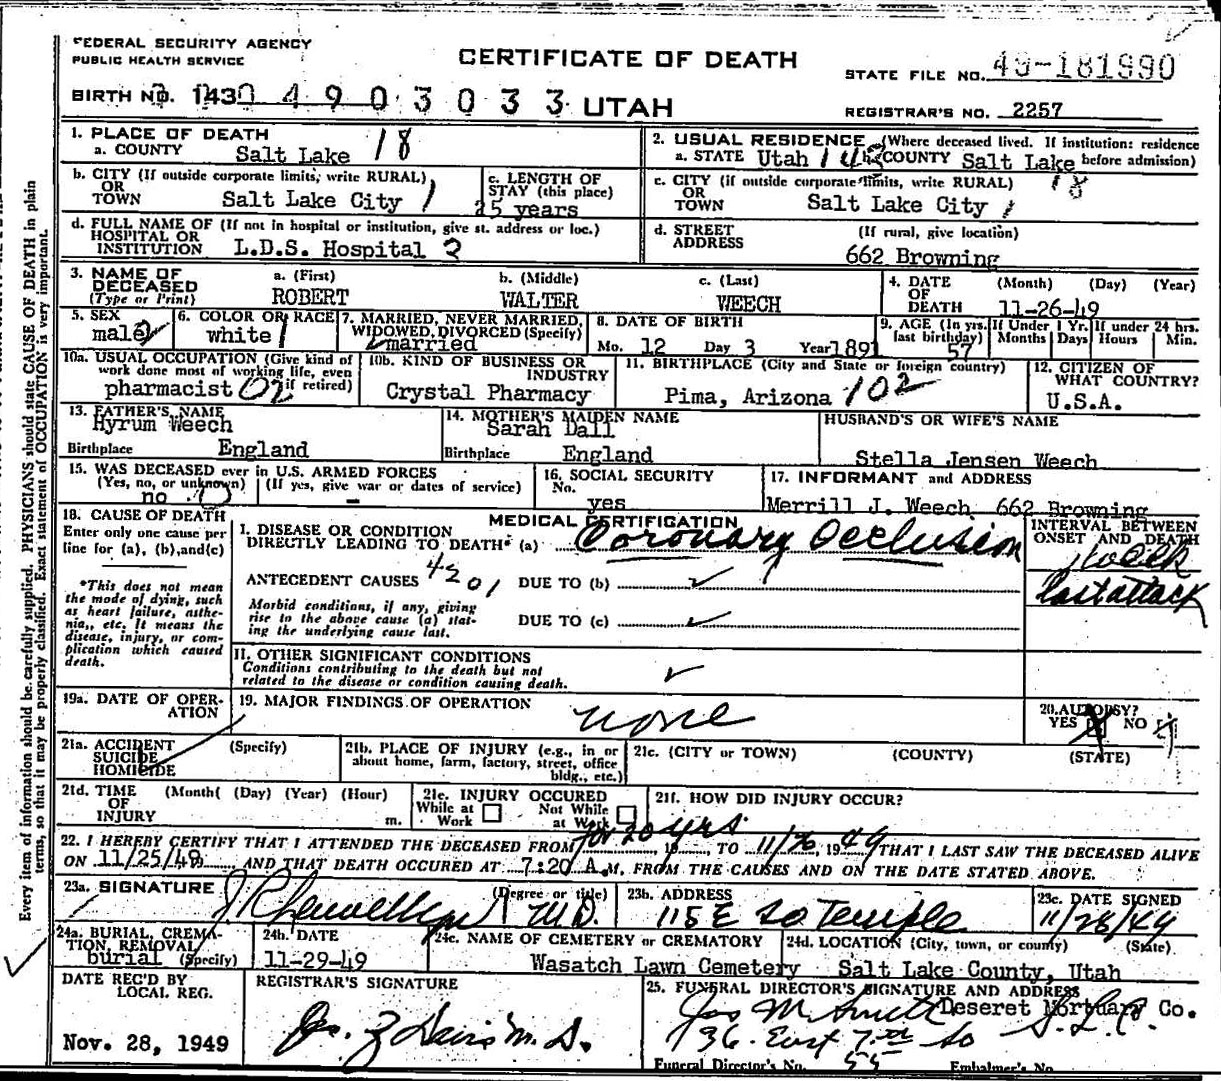 FEDERAL SECURITY AGENCY
PUBLIC HEALTH SERVICE
CERTIFICATE OF DEATH
STATE FILE NO. 49-181990
BIRTH NO. 1430 4903033 UTAH
REGISTRAR'S NO. 2257
1. PLACE OF DEATH
a. COUNTY Salt Lake 18
2. USUAL RESIDENCE (Where deceased lived. If institution: residence before admission)
a. STATE Utah COUNTY Salt Lake
b. CITY (If outside corporate limits, write RURAL) OR TOWN Salt Lake City 1
c. LENGTH OF STAY (this place) 25 years
c. CITY (if outside corporate limits, write RURAL) OR TOWN Salt Lake City 1 18
d. FULL NAME OF (If not in hospital or institution, give st. address or loc.)
HOSPITAL OR INSTITUTION L.D.S. Hospital
d. STREET ADDRESS (If rural, give location)
662 Browning
3. NAME OF DECEASED (Type or Print)
a. (First) b. (Middle) c. (Last)
ROBERT WALTER WEECH
4. DATE OF DEATH (Month) (Day) (Year)
11-26-49
5. SEX male
6. COLOR OR RACE white
7. MARRIED, NEVER MARRIED, WIDOWED, DIVORCED (Specify) married
8. DATE OF BIRTH
Mo. 12 Day 3 Year 1891
9. AGE (In yrs. last birthday) 57
If Under 1 Yr. Months Days
If under 24 hrs. Hours Min.
10a. USUAL OCCUPATION (Give kind of work done most of working life, even if retired)
pharmacist 02
10b. KIND OF BUSINESS OR INDUSTRY
Crystal Pharmacy
11. BIRTHPLACE (City and State or foreign country)
Pima, Arizona 102
12. CITIZEN OF WHAT COUNTRY?
U.S.A.
13. FATHER'S NAME
Hyrum Weech
Birthplace England
14. MOTHER'S MAIDEN NAME
Sarah Dall
Birthplace England
HUSBAND'S OR WIFE'S NAME
Stella Jensen Weech
15. WAS DECEASED ever in U.S. ARMED FORCES
(Yes, no, or unknown) (If yes, give war or dates of service)
no 0 -
16. SOCIAL SECURITY No.
yes
17. INFORMANT and ADDRESS
Merrill J. Weech 662 Browning
18. CAUSE OF DEATH
Enter only one cause per line for (a), (b), and (c)
*This does not mean the mode of dying, such as heart failure, asthenia, etc. It means the disease, injury, or complication which caused death.
MEDICAL CERTIFICATION
I. DISEASE OR CONDITION DIRECTLY LEADING TO DEATH* (a) Coronary Occlusion
ANTECEDENT CAUSES 4201 DUE TO (b)
Morbid conditions, if any, giving rise to the above cause (a) stating the underlying cause last.
DUE TO (c)
INTERVAL BETWEEN ONSET AND DEATH
1 week
last attack
II. OTHER SIGNIFICANT CONDITIONS
Conditions contributing to the death but not related to the disease or condition causing death.
19a. DATE OF OPERATION
19. MAJOR FINDINGS OF OPERATION
none
20. AUTOPSY?
YES X NO
21a. ACCIDENT SUICIDE HOMICIDE (Specify)
21b. PLACE OF INJURY (e.g., in or about home, farm, factory, street, office bldg., etc.)
21c. (CITY or TOWN) (COUNTY) (STATE)
21d. TIME OF INJURY (Month( (Day) (Year) (Hour) m.
21e. INJURY OCCURED
While at Work Not While at Work
21f. HOW DID INJURY OCCUR?
22. I HEREBY CERTIFY THAT I ATTENDED THE DECEASED FROM for 20 yrs. 19 , TO 11/26, 1949 THAT I LAST SAW THE DECEASED ALIVE
ON 11/25/49 AND THAT DEATH OCCURED AT 7:20 A.M. FROM THE CAUSES AND ON THE DATE STATED ABOVE.
23a. SIGNATURE (Degree or title) M.D.
23b. ADDRESS 115 E So Temple
23c. DATE SIGNED 11/28/49
24a. BURIAL, CREMATION, REMOVAL (Specify) burial
24b. DATE 11-29-49
24c. NAME OF CEMETERY or CREMATORY
Wasatch Lawn Cemetery
24d. LOCATION (City, town, or county) (State)
Salt Lake County, Utah
DATE REC'D BY LOCAL REG.
Nov. 28, 1949
REGISTRAR'S SIGNATURE
25. FUNERAL DIRECTOR'S SIGNATURE AND ADDRESS
Jas M Smith Deseret Mortuary Co.
36 East 7th So S.L.C.
Funeral Director's No. 55 Embalmer's No.
Every item of information should be carefully supplied. PHYSICIANS should state CAUSE OF DEATH in plain
terms, so that it may be properly classified. Exact statement of OCCUPATION is very important.